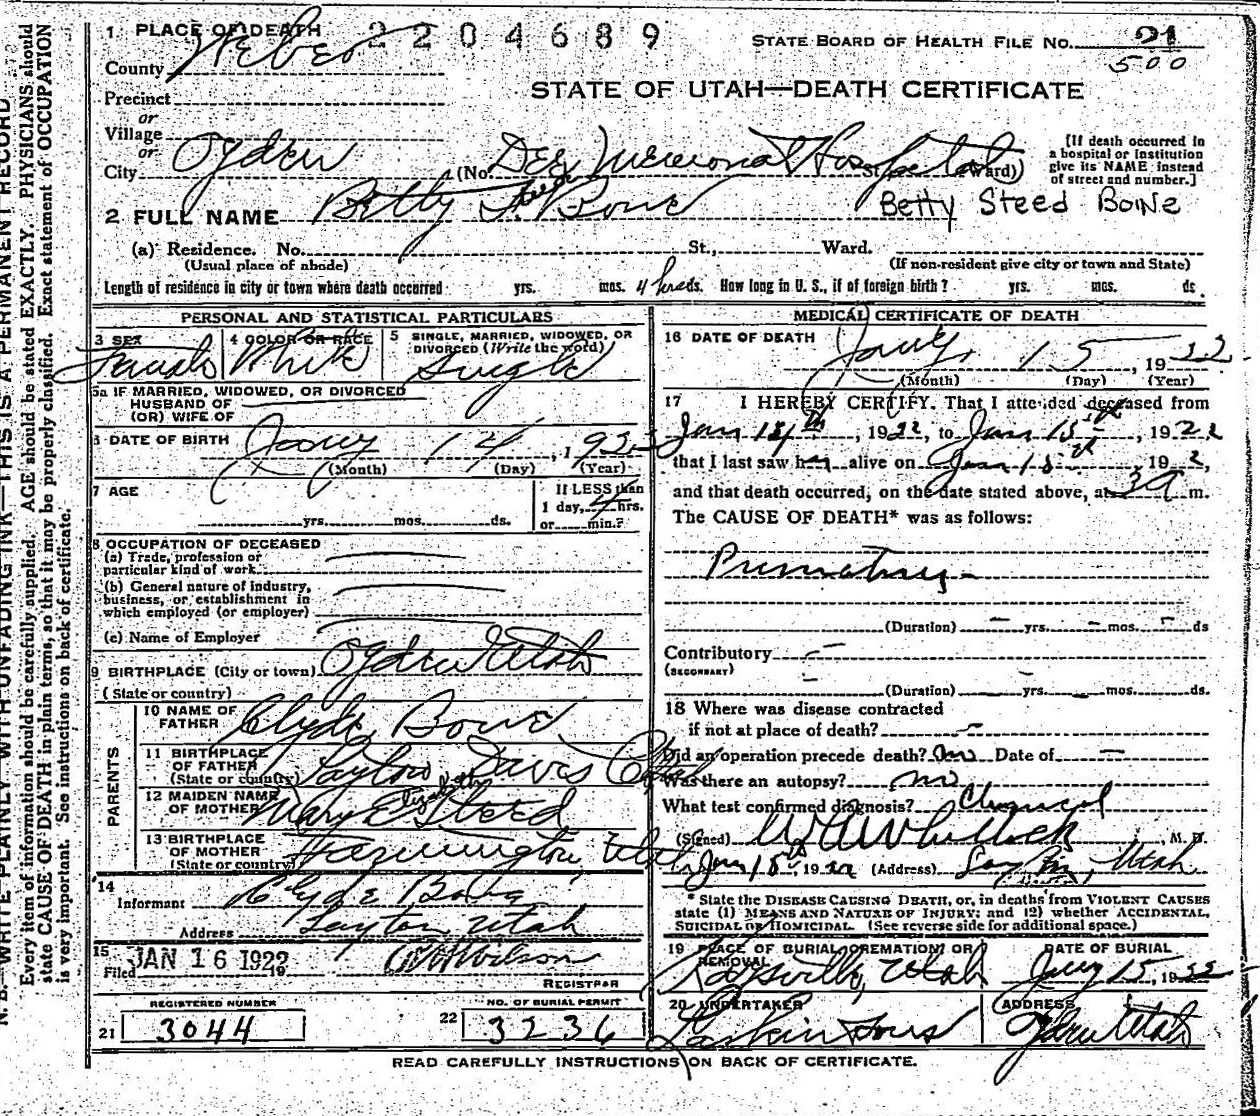 N. B.—WRITE PLAINLY, WITH UNFADING INK—THIS IS A PERMANENT RECORD
Every item of information should be carefully supplied. AGE should be stated EXACTLY. PHYSICIANS should
state CAUSE OF DEATH in plain terms, so that it may be properly classified. Exact statement of OCCUPATION
is very important. See instructions on back of certificate.
2204689
STATE BOARD OF HEALTH FILE NO. 21
500
STATE OF UTAH—DEATH CERTIFICATE
1 PLACE OF DEATH
County Weber
Precinct
or
Village
or
City Ogden (No. Dee Memorial Hospital St. Ward)
[If death occurred in
a hospital or institution
give its NAME instead
of street and number.]
2 FULL NAME Betty S. Bone
Betty Steed Boine
(a) Residence. No. St., Ward.
(Usual place of abode) (If non-resident give city or town and State)
Length of residence in city or town where death occurred yrs. mos. 4 hrs ds. How long in U. S., if of foreign birth? yrs. mos. ds
PERSONAL AND STATISTICAL PARTICULARS
3 SEX Female
4 COLOR OR RACE White
5 SINGLE, MARRIED, WIDOWED, OR
DIVORCED (Write the word) Single
5a IF MARRIED, WIDOWED, OR DIVORCED
HUSBAND OF
(OR) WIFE OF
6 DATE OF BIRTH Jany 14, 1922
(Month) (Day) (Year)
7 AGE yrs. mos. ds.
If LESS than
1 day, 4 hrs.
or min.?
8 OCCUPATION OF DECEASED
(a) Trade, profession or
particular kind of work
(b) General nature of industry,
business, or establishment in
which employed (or employer)
(c) Name of Employer
9 BIRTHPLACE (City or town) Ogden Utah
(State or country)
PARENTS
10 NAME OF
FATHER Clyde Bone
11 BIRTHPLACE
OF FATHER
(State or country) Layton Davis Co
12 MAIDEN NAME
OF MOTHER Mary E Steed
Elizabeth
13 BIRTHPLACE
OF MOTHER
(State or country) Farmington, Utah
14
Informant Clyde Bone
Address Layton Utah
15
Filed JAN 16 1922 19
Wilson
REGISTRAR
REGISTERED NUMBER
21 3044
NO. OF BURIAL PERMIT
22 3236
MEDICAL CERTIFICATE OF DEATH
16 DATE OF DEATH Jany. 15, 1922
(Month) (Day) (Year)
17 I HEREBY CERTIFY. That I attended deceased from
Jan 14th, 1922, to Jan 15th, 1922
that I last saw her alive on Jan 15th, 192 2,
and that death occurred, on the date stated above, at 3 a m.
The CAUSE OF DEATH* was as follows:
Prematury
(Duration) - yrs. - mos. - ds
Contributory -
(SECONDARY)
(Duration) - yrs. - mos. ds.
18 Where was disease contracted
if not at place of death? -
Did an operation precede death? no Date of -
Was there an autopsy? no
What test confirmed diagnosis?
(Signed) Whitlock, M. D.
Jan 15th, 1922 (Address) Layton, Utah
* State the DISEASE CAUSING DEATH, or, in deaths from VIOLENT CAUSES
state (1) MEANS AND NATURE OF INJURY; and (2) whether ACCIDENTAL,
SUICIDAL OR HOMICIDAL. (See reverse side for additional space.)
19 PLACE OF BURIAL, CREMATION, OR
REMOVAL Kaysville, Utah
DATE OF BURIAL
Jany 15, 1922
20 UNDERTAKER
Larkin & Sons
ADDRESS
Ogden Utah
READ CAREFULLY INSTRUCTIONS ON BACK OF CERTIFICATE.